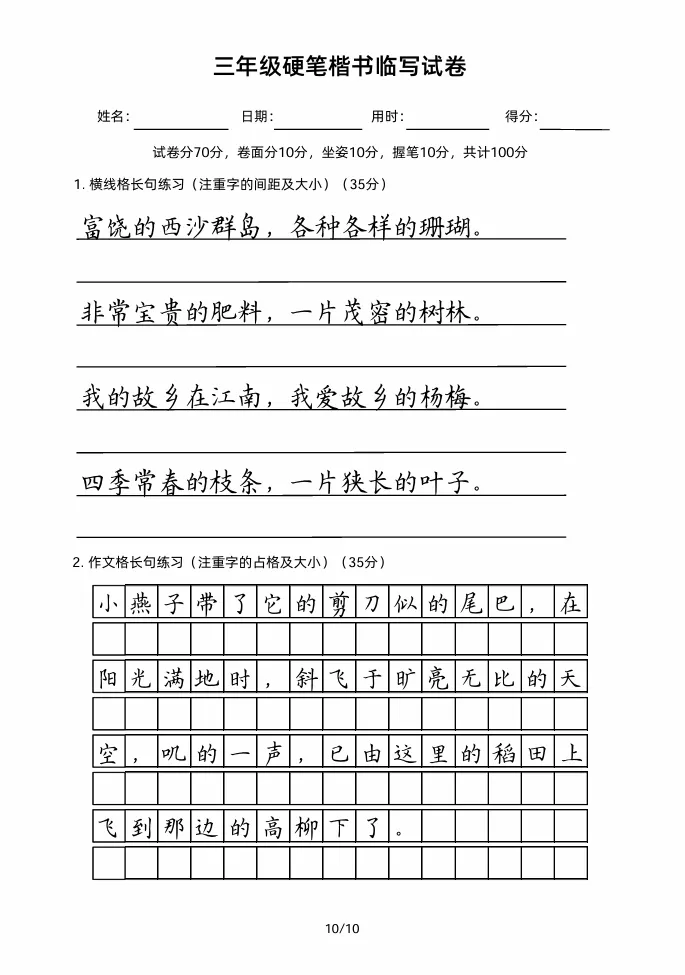 三年级硬笔楷书临写试卷
姓名： 日期： 用时： 得分：
试卷分70分，卷面分10分，坐姿10分，握笔10分，共计100分
1. 横线格长句练习（注重字的间距及大小）（35分）
富饶的西沙群岛，各种各样的珊瑚。
非常宝贵的肥料，一片茂密的树林。
我的故乡在江南，我爱故乡的杨梅。
四季常春的枝条，一片狭长的叶子。
2. 作文格长句练习（注重字的占格及大小）（35分）
小燕子带了它的剪刀似的尾巴，在
阳光满地时，斜飞于旷亮无比的天
空，叽的一声，已由这里的稻田上
飞到那边的高柳下了。
10/10